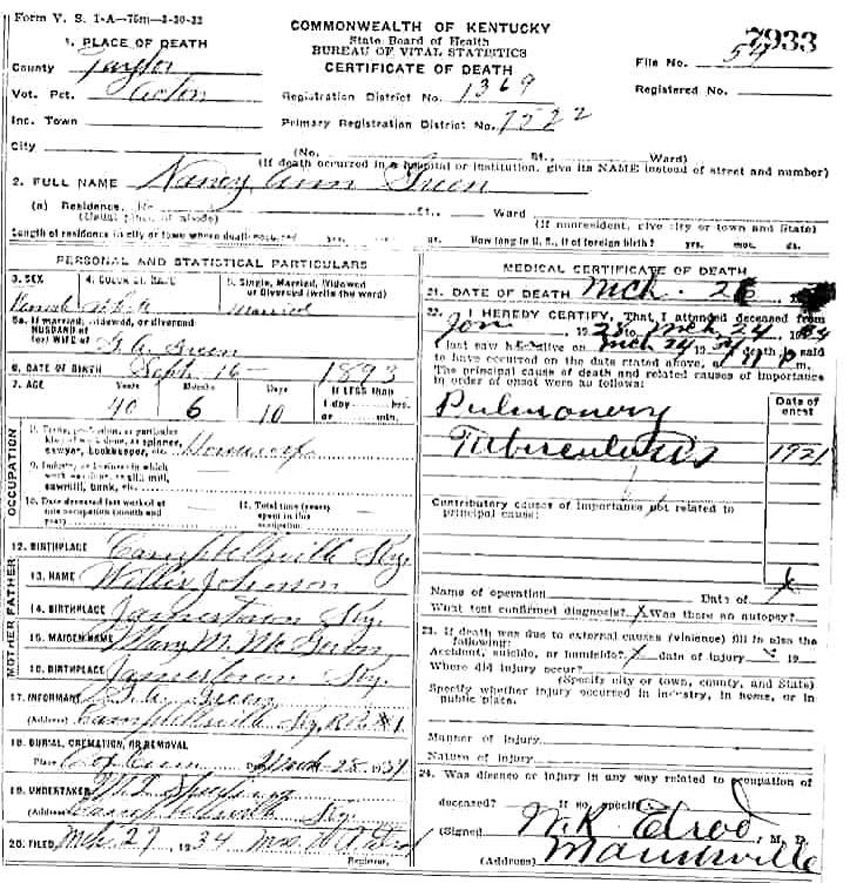 Form V. S. 1-A—75m—3-30-32
COMMONWEALTH OF KENTUCKY
State Board of Health
BUREAU OF VITAL STATISTICS
CERTIFICATE OF DEATH
7933
1. PLACE OF DEATH
County Taylor
File No. 54
Vot. Pct. Acton
Registration District No. 1369
Registered No.
Inc. Town
Primary Registration District No. 7522
City
(No. St., Ward)
(If death occurred in a hospital or institution, give its NAME instead of street and number)
2. FULL NAME Nancy Ann Green
(a) Residence. No. St., Ward
(Usual place of abode) (If nonresident, give city or town and State)
Length of residence in city or town where death occurred yrs. mos. ds. How long in U. S., if of foreign birth? yrs. mos. ds.
PERSONAL AND STATISTICAL PARTICULARS
3. SEX 4. COLOR OR RACE 5. Single, Married, Widowed
or Divorced (write the word)
Female White Married
5a. If married, widowed, or divorced
HUSBAND of
(or) WIFE of
G. A. Green
6. DATE OF BIRTH Sept 16— 1893
7. AGE Years Months Days If LESS than
40 6 10 1 day hrs.
or min.
OCCUPATION
8. Trade, profession, or particular
kind of work done, as spinner,
sawyer, bookkeeper, etc. Housework
9. Industry or business in which
work was done, as silk mill,
sawmill, bank, etc.
10. Date deceased last worked at
this occupation (month and
year)
11. Total time (years)
spent in this
occupation
12. BIRTHPLACE Campbellsville Ky.
FATHER
13. NAME Willis Johnson
14. BIRTHPLACE Jamestown Ky.
MOTHER
15. MAIDEN NAME Mary M.
16. BIRTHPLACE Jamestown Ky.
17. INFORMANT G. A. Green
(Address) Campbellsville Ky. R #1
18. BURIAL, CREMATION, OR REMOVAL
Place Date March 28 1934
19. UNDERTAKER
(Address) Campbellsville Ky.
20. FILED Mch 27, 1934 Mrs.
Registrar.
MEDICAL CERTIFICATE OF DEATH
21. DATE OF DEATH Mch. 26
22. I HEREBY CERTIFY, That I attended deceased from
Jan 1928 to Mch. 24 1934
I last saw h alive on Mch 24 1934 death is said
to have occurred on the date stated above, at m.
The principal cause of death and related causes of importance
in order of onset were as follows:
Date of
onset
Pulmonary
Tuberculosis 1921
Contributory causes of importance not related to
principal cause:
Name of operation Date of
What test confirmed diagnosis? X Was there an autopsy?
23. If death was due to external causes (violence) fill in also the
following:
Accident, suicide, or homicide? date of injury 19
Where did injury occur?
(Specify city or town, county, and State)
Specify whether injury occurred in industry, in home, or in
public place.
Manner of injury
Nature of injury
24. Was disease or injury in any way related to occupation of
deceased? If so specify
(Signed) W. R. Elrod, M. D.
(Address) Mannsville